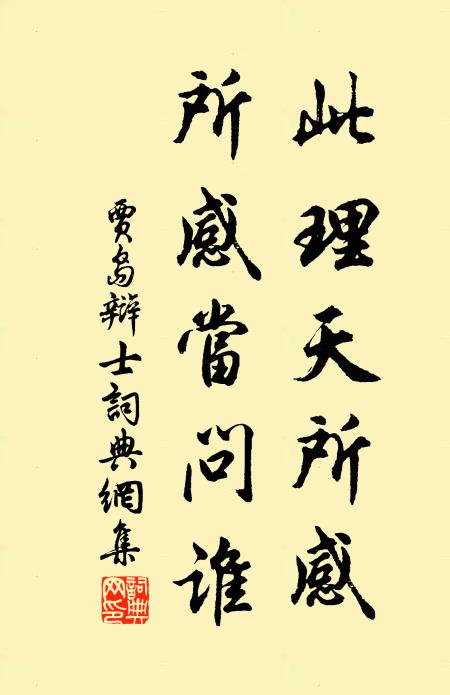 此理天所感
所感當問誰
賈島辯士詞典網集
詞典